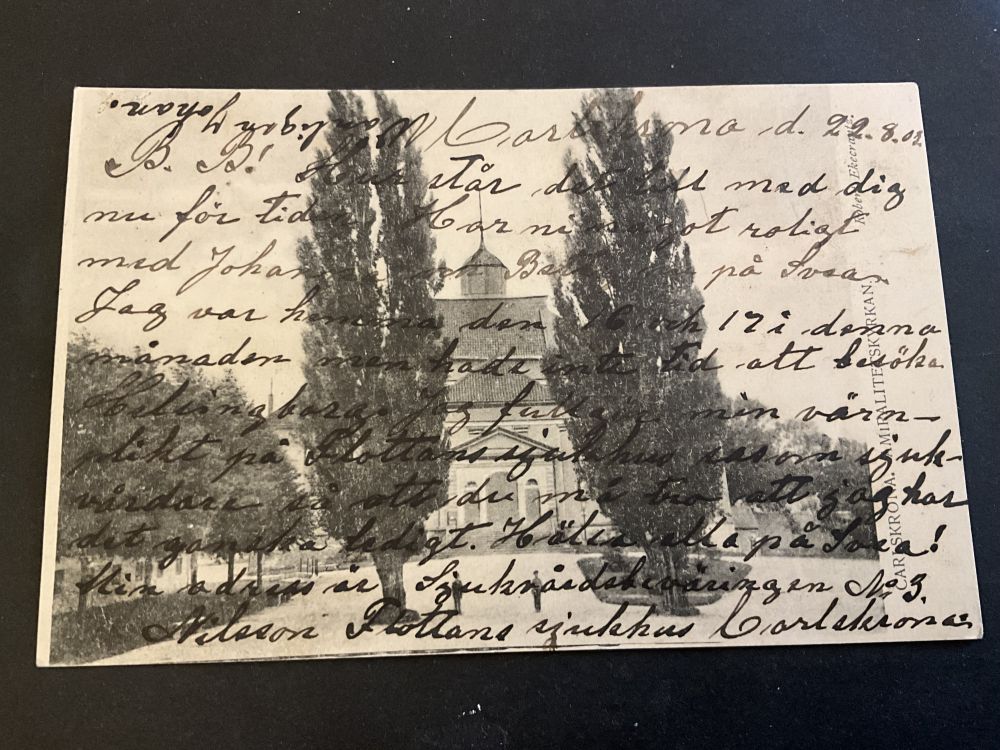 Carlskrona d. 22.8.02.
B. B! Hur står det till med dig
nu för tiden Har ni något roligt
med Johans på Svea,
Jag var hemma den 16 och 17 i denna
månaden men hade inte tid att besöka
Helsingborg. Jag fullgör min värn-
plikt på Flottans sjukhus såsom sjuk-
vårdare så att du må tro att jag har
det ganska ledigt. Hälsa alla på Svea!
Min adress är Sjukvårdsbeväringen No 3.
Nilsson Flottans sjukhus Carlskrona.
Vänligen Johan.
CARLSKRONA. AMIRALITETSKYRKAN.